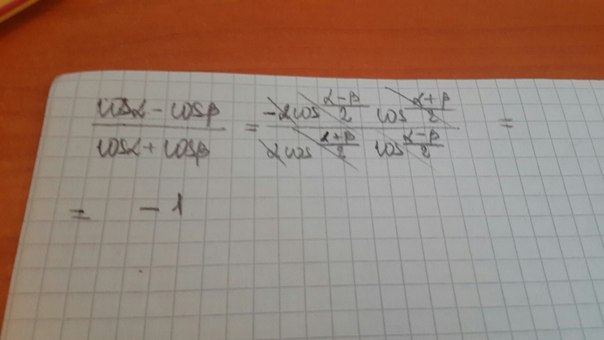 (cosα - cosβ)/(cosα + cosβ) = (-2cos (α-β)/2 cos (α+β)/2)/(2cos (α+β)/2 cos (α-β)/2) =
= -1